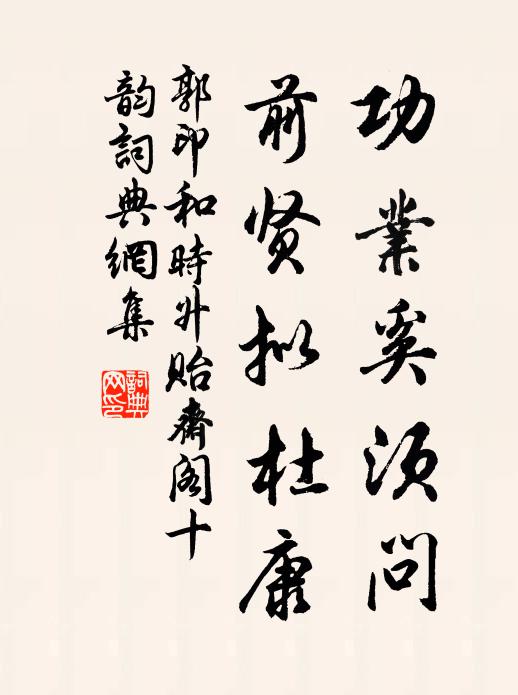 功業奚須問
前贤拟杜康
郭印和時升貽齋閣十
韵詞典網集
詞典網印